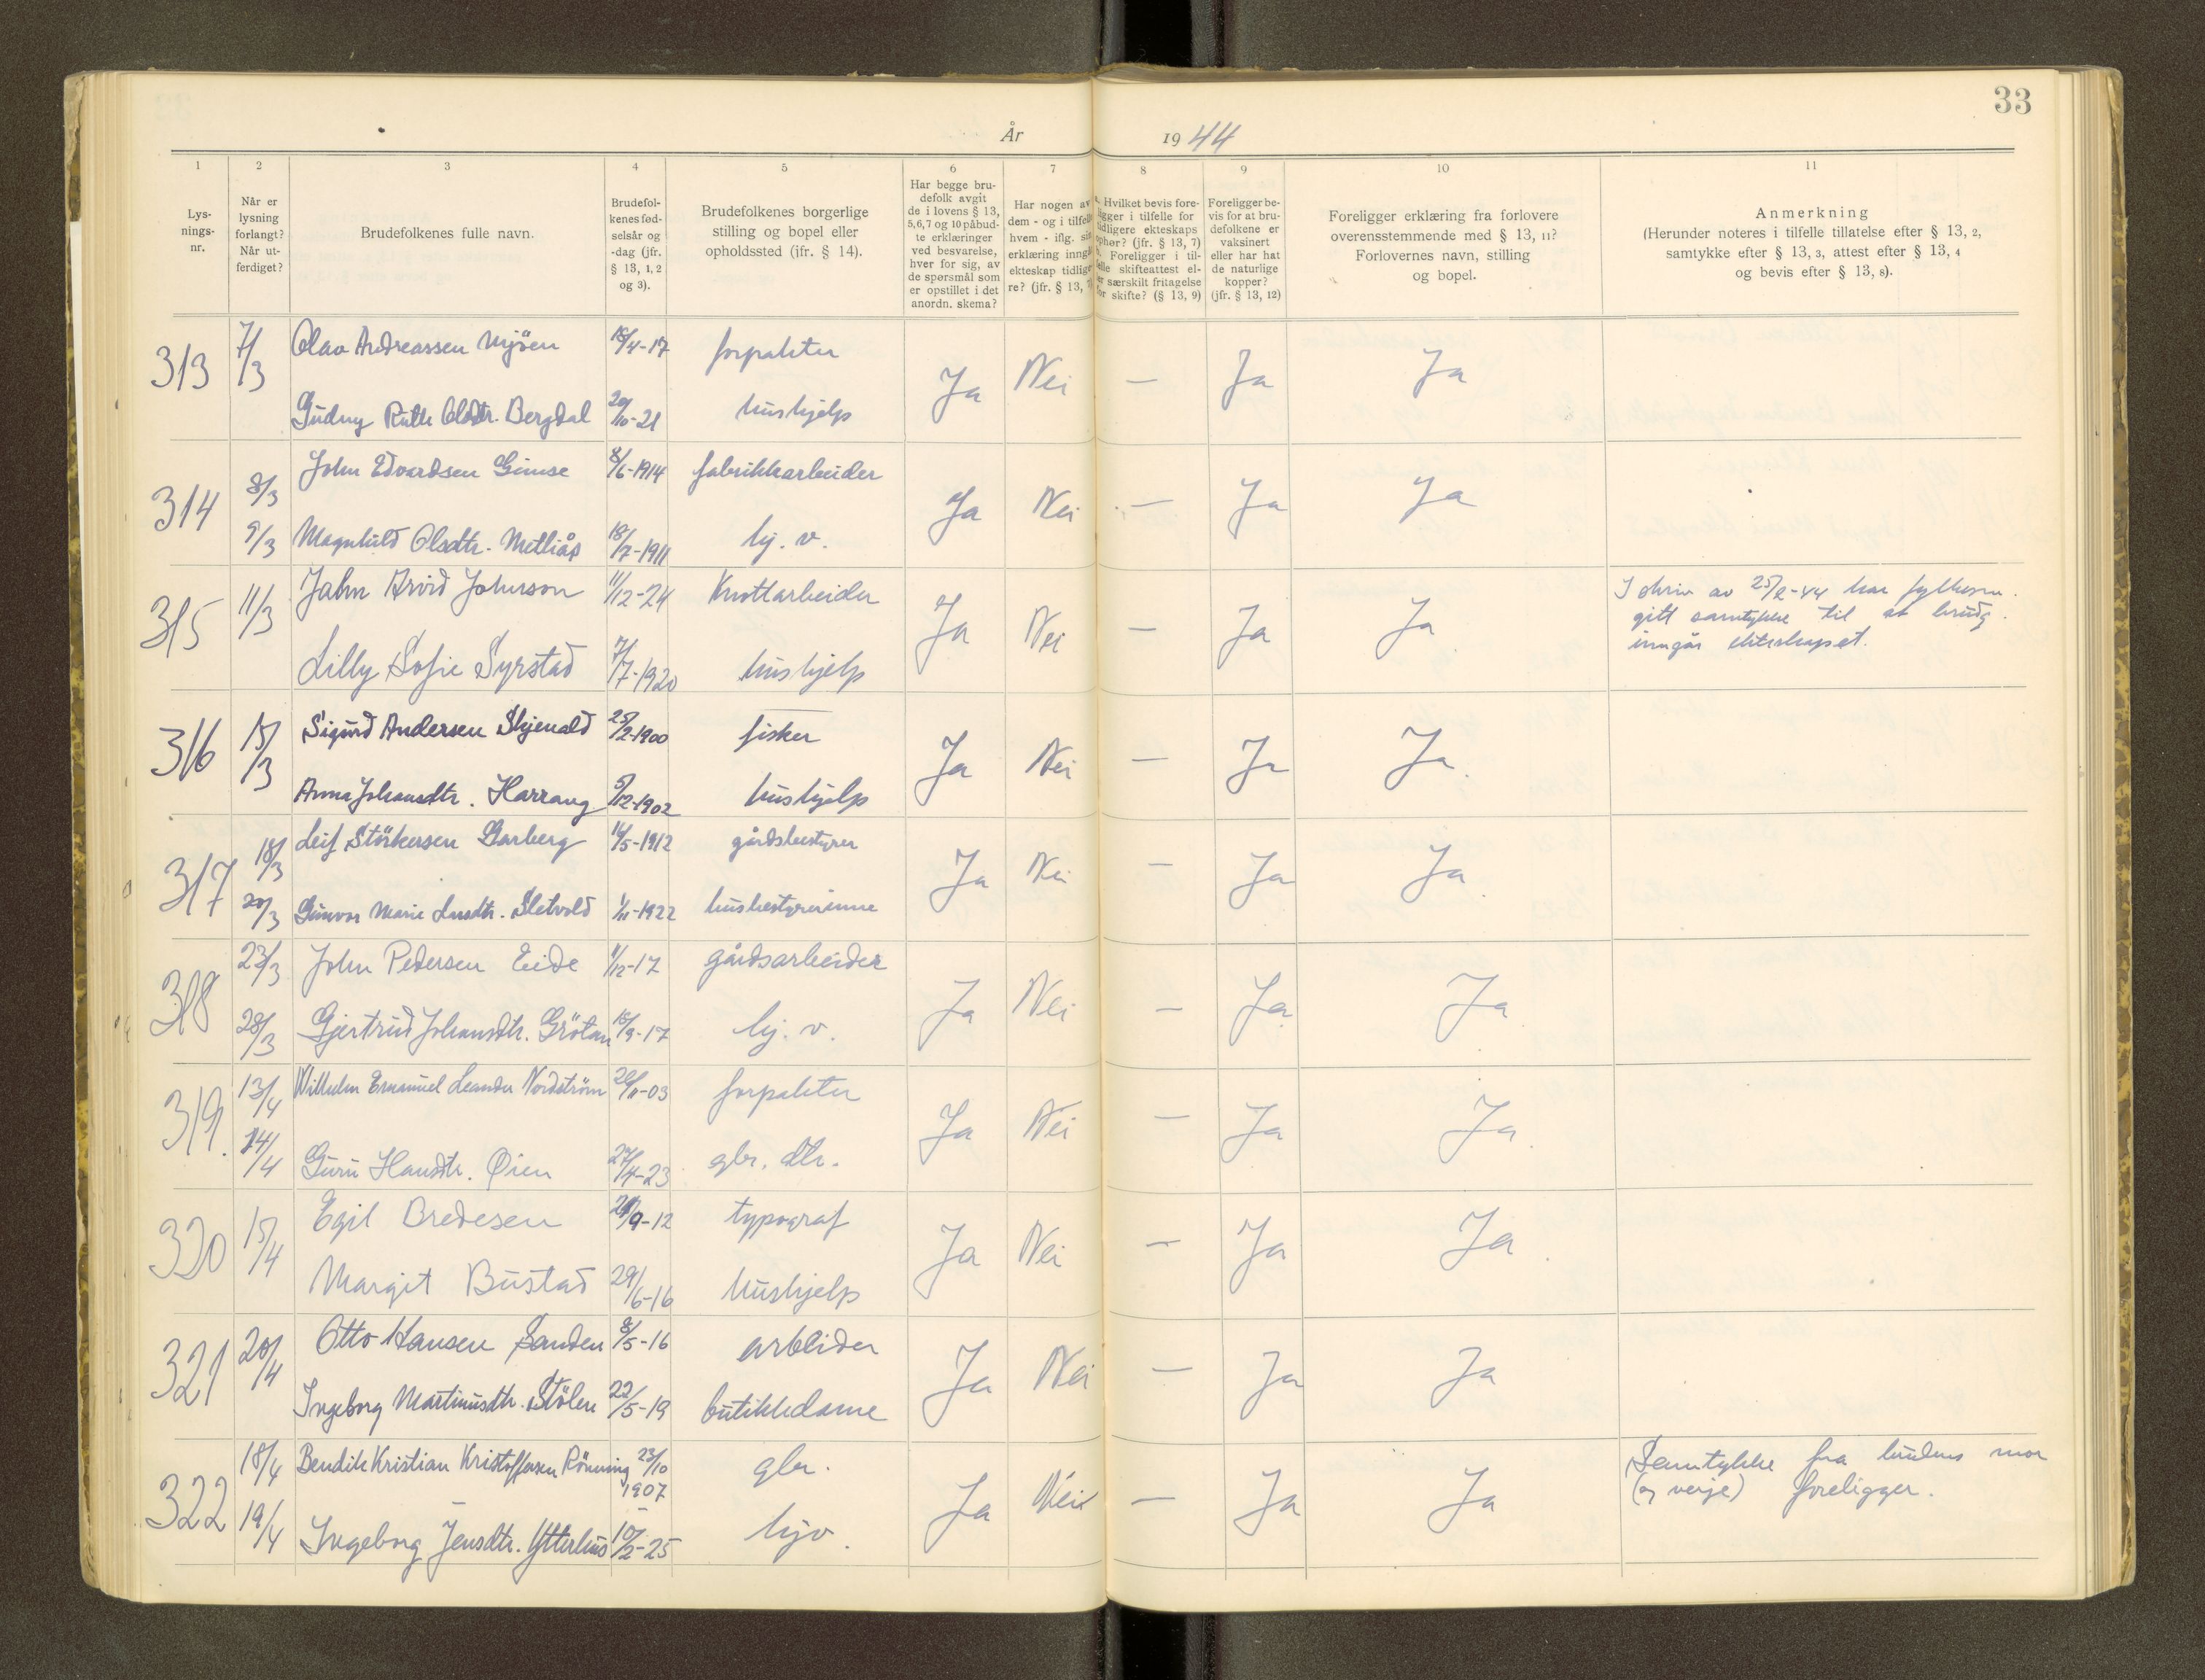 33
År 1944
1 2 3 4 5 6 7 8 9 10 11
Lys-
nings-
nr.
Når er
lysning
forlangt?
Når ut-
ferdiget?
Brudefolkenes fulle navn.
Brudefol-
kenes fød-
selsår og
-dag (jfr.
§ 13, 1, 2
og 3).
Brudefolkenes borgerlige
stilling og bopel eller
opholdssted (jfr. § 14).
Har begge bru-
defolk avgit
de i lovens § 13,
5,6,7 og 10 påbud-
te erklæringer
ved besvarelse,
hver for sig, av
de spørsmål som
er opstillet i det
anordn. skema?
Har nogen av
dem - og i tilfelle
hvem - iflg. sin
erklæring inngå
ekteskap tidlige-
re? (jfr. § 13, 7
Hvilket bevis fore-
ligger i tilfelle for
tidligere ekteskaps
ophør? (jfr. § 13, 7)
Foreligger i til-
felle skifteattest el-
er særskilt fritagelse
for skifte? (§ 13, 9)
Foreligger be-
vis for at bru-
defolkene er
vaksinert
eller har hat
de naturlige
kopper?
(jfr. § 13, 12)
Foreligger erklæring fra forlovere
overensstemmende med § 13, 11?
Forlovernes navn, stilling
og bopel.
Anmerkning
(Herunder noteres i tilfelle tillatelse efter § 13, 2,
samtykke efter § 13, 3, attest efter § 13, 4
og bevis efter § 13, 8).
313 7/3 Olav Andreassen Mjöen 15/4-17 forpakter Ja Nei — Ja Ja
Gudny Ruth Olsdtr. Bergdal 20/10-21 hushjelp
314 8/3 John Edvardsen Gimse 8/6-1914 fabrikkarbeider Ja Nei — Ja Ja
9/3 Magnhild Olsdtr. Metliås 18/7-1911 hj. v.
315 11/3 Jahn Arvid Johnson 11/12-24 Knottarbeider Ja Nei — Ja Ja
I skriv av 25/2-44 har fylkesm.
gitt samtykke til at brudg.
inngår ekteskapet.
Lilly Sofie Syrstad 7/7-1920 hushjelp
316 15/3 Sigurd Andersen Skjenald 25/2-1900 fisker Ja Nei — Ja Ja
Anna Johansdtr. Harrang 5/12-1902 hushjelp
317 18/3 Leif Störkersen Garberg 14/5-1912 gårdsbestyrer Ja Nei — Ja Ja
20/3 Gunvor Marie Larsdtr. Sletvold 1/11-1922 husbestyrerinne
318 23/3 John Pedersen Eide 1/12-17 gårdsarbeider Ja Nei — Ja Ja
28/3 Gjertrud Johansdtr. Grötan 15/9-17 hj. v.
319. 13/4 Wilhelm Emanuel Leander Nordström 20/11-03 forpakter Ja Nei — Ja Ja
14/4 Guru Hansdtr. Øien 27/4-23 gbr. dtr.
320 15/4 Egil Bredesen 21/9-12 typograf Ja Nei — Ja Ja
Margit Bustad 29/6-16 Hushjelp
321 20/4 Otto Hansen Sanden 8/5-16 arbeider Ja Nei — Ja Ja
Ingeborg Martinusdtr. Stölen 22/5-19 butikkdame
322 18/4 Bendik Kristian Kristoffersen Rönning 23/10 1907 gbr. Ja Nei — Ja Ja
Samtykke fra brudens mor
(og verje) foreligger.
19/4 Ingeborg Jensdtr. Ytterhus 10/2-25 hjv.